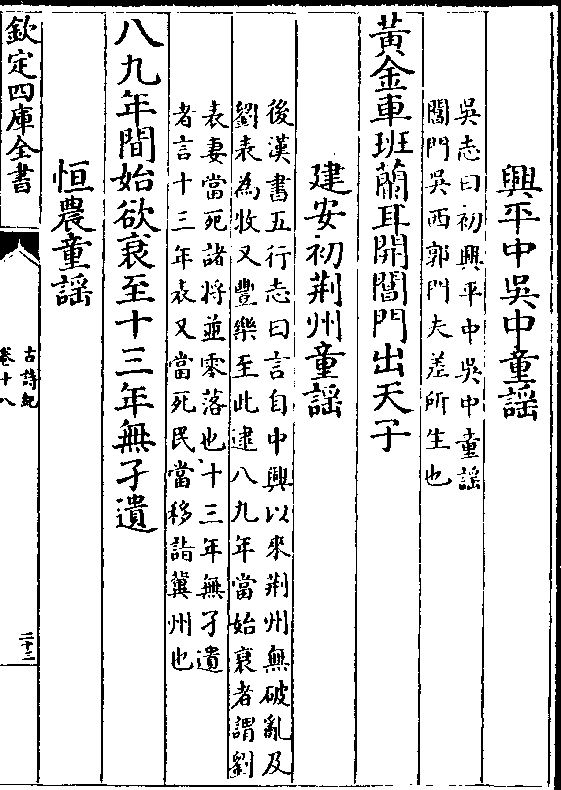 興平中吳中童謡
吳志曰初興平中吳中童謡
閶門吳西郭門夫差所生也
黃金車班蘭耳開閶門出天子
建安初荆州童謡
後漢書五行志曰言自中興以來荆州無破亂及
劉表為牧又豐樂至此逮八九年當始衰者謂劉
表妻當死諸將並零落也十三年無孑遺
者言十三年表又當死民當移詣冀州也
八九年間始欲衰至十三年無孑遺
恒農童謡
欽定四庫全書
古詩紀
卷十八
二十二